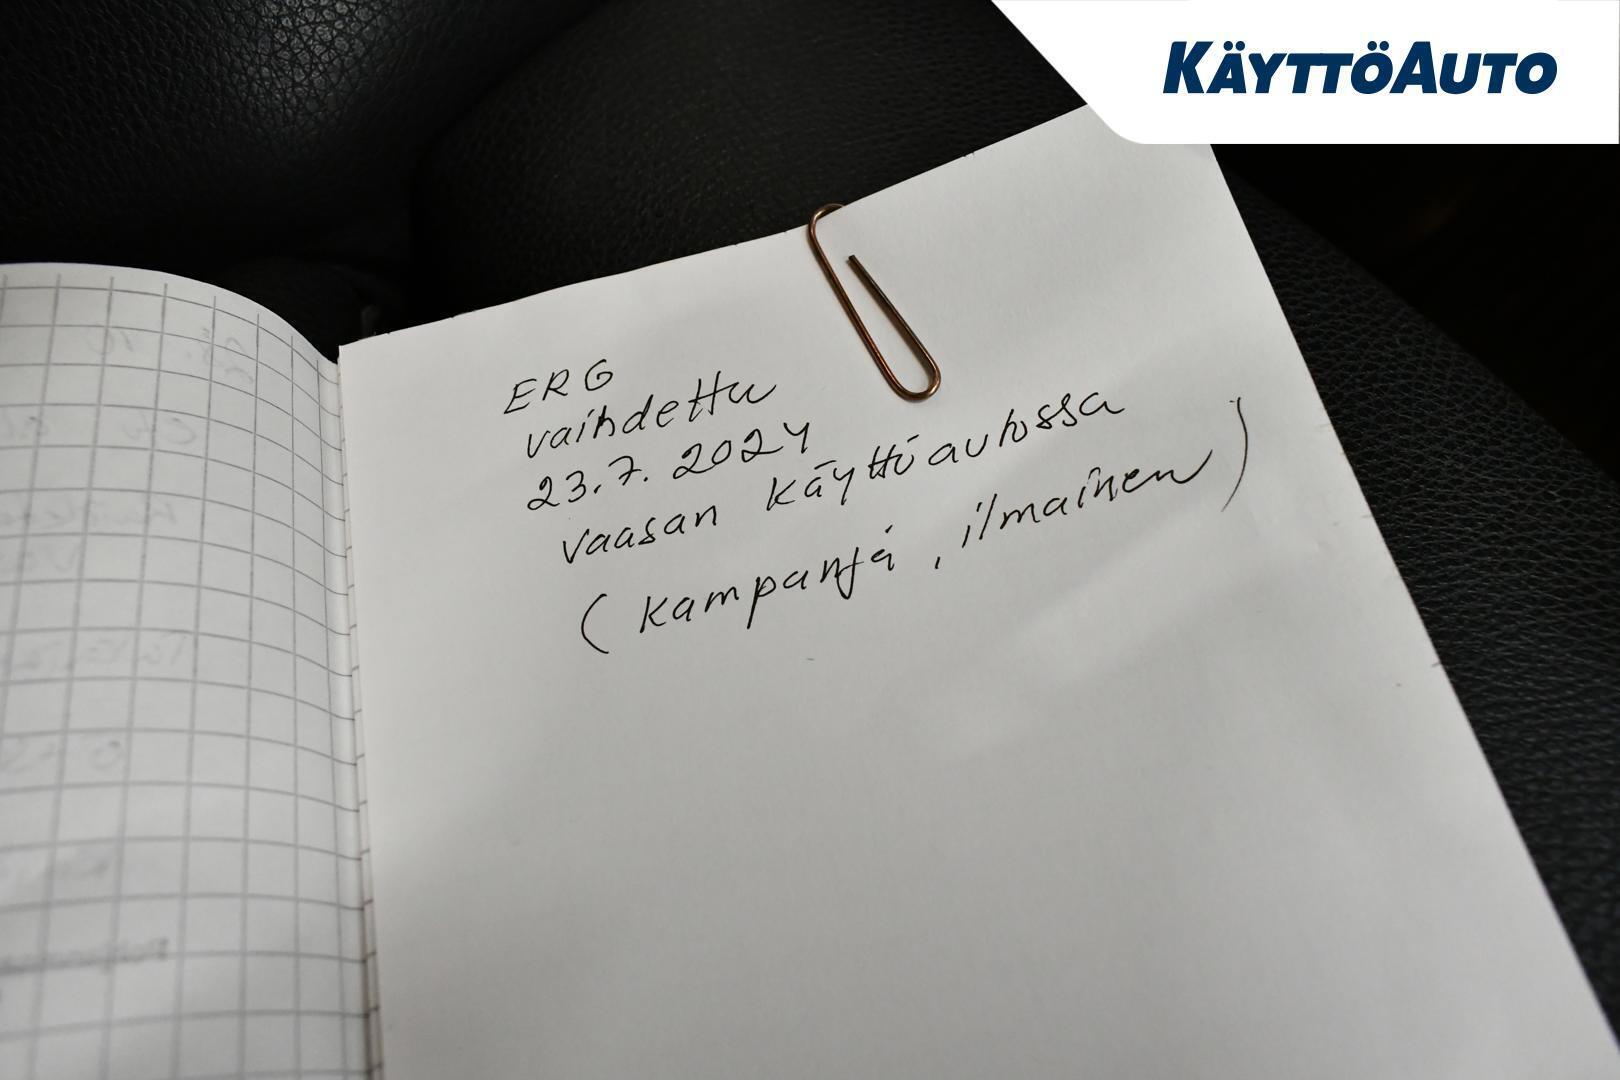 KÄYTTÖAUTO
ERG
vaihdettu
23.7.2024
vaasan käyttöautossa
(kampanja, ilmainen)